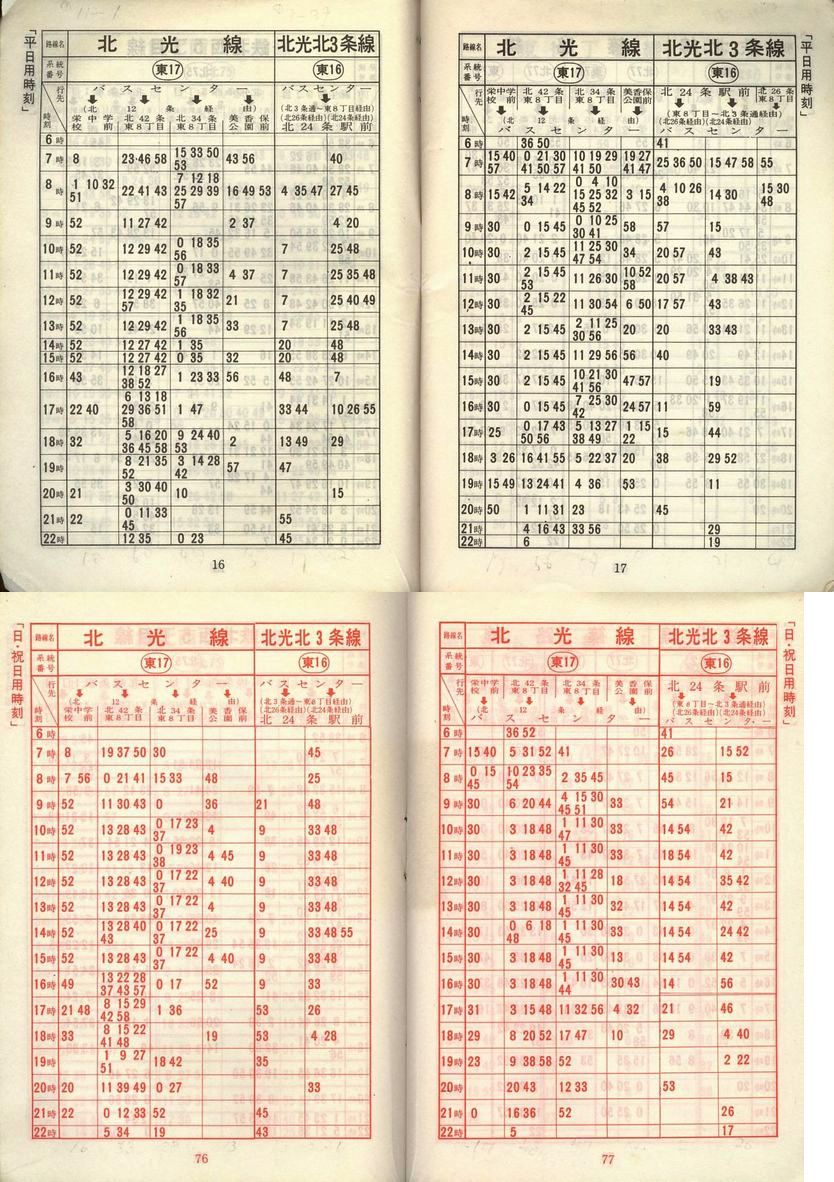 「平日用時刻」
路線名 北光線 北光北3条線
系統番号 東17 東16
行先 バスセンター バスセンター
(北12条経由) (北3条通~東8丁目経由)
(北26条経由)(北24条経由)
時刻 栄中学校前 北42条東8丁目 北34条東8丁目 美香保公園前 北24条駅前
6時
7時 8 23・46 58 15 33 50 53 43 56 40
8時 1 10 32 51 22 41 43 7 12 18 25 29 39 57 16 49 53 4 35 47 27 45
9時 52 11 27 42 2 37 4 20
10時 52 12 29 42 0 18 35 56 7 25 48
11時 52 12 29 42 0 18 33 57 4 37 7 25 35 48
12時 52 12 29 42 57 1 18 32 35 21 7 25 40 49
13時 52 12 29 42 1 18 35 56 33 7 25 48
14時 52 12 27 42 1 35 20 48
15時 52 12 27 42 0 35 32 20 48
16時 43 12 18 27 38 52 1 23 33 56 48 7
17時 22 40 6 13 18 29 36 51 58 1 47 33 44 10 26 55
18時 32 5 16 20 36 45 58 9 24 40 53 2 13 49 29
19時 8 21 35 52 3 14 28 42 57 47
20時 21 3 30 40 50 10 15
21時 22 0 11 33 45 55
22時 12 35 0 23 45
16
「平日用時刻」
路線名 北光線 北光北3条線
系統番号 東17 東16
行先 栄中学校前 北42条東8丁目 北34条東8丁目 美香保公園前 北24条駅前 北26条東8丁目
(北12条経由) (東8丁目~北3条通経由)
(北26条経由)(北24条経由)
時刻 バスセンター バスセンター
6時 36 50 41
7時 15 40 57 0 21 30 41 50 57 10 19 29 41 50 19 27 41 47 25 36 50 15 47 58 55
8時 15 42 5 14 22 34 0 4 10 15 25 32 45 52 3 15 4 10 26 38 14 30 15 30 48
9時 30 0 15 45 0 10 25 30 41 58 57 15
10時 30 2 15 45 11 25 30 47 54 34 20 57 43
11時 30 2 15 45 53 11 26 30 10 52 58 20 57 4 38 43
12時 30 2 15 22 45 11 30 54 6 50 17 57 43
13時 30 2 15 45 2 11 25 30 56 20 20 33 43
14時 30 2 15 45 11 29 56 56 40
15時 30 2 15 45 10 21 30 41 56 47 57 19
16時 30 0 15 45 7 25 30 42 24 57 11 59
17時 25 0 17 43 50 56 5 13 27 38 49 1 15 22 15 44
18時 3 26 16 41 55 5 22 37 20 38 29 52
19時 15 49 13 24 41 4 36 53 11
20時 50 1 11 31 23 45
21時 4 16 43 33 56 29
22時 6 19
17
「日・祝日用時刻」
路線名 北光線 北光北3条線
系統番号 東17 東16
行先 バスセンター バスセンター
(北12条経由) (北3条通~東8丁目経由)
(北26条経由)(北24条経由)
時刻 栄中学校前 北42条東8丁目 北34条東8丁目 美香保公園前 北24条駅前
6時
7時 8 19 37 50 30 45
8時 7 56 0 21 41 15 33 48 25
9時 52 11 30 43 0 36 21 48
10時 52 13 28 43 0 17 23 37 4 9 33 48
11時 52 13 28 43 0 19 23 38 4 45 9 33 48
12時 52 13 28 43 0 17 22 37 4 40 9 33 48
13時 52 13 28 43 0 17 22 37 4 9 33 48
14時 52 13 28 40 43 0 17 22 37 25 9 33 48 55
15時 52 13 28 43 0 17 22 37 4 40 9 33 48
16時 49 13 22 28 37 43 57 0 17 52 9 33
17時 21 48 8 15 29 42 58 1 36 53 26
18時 33 8 15 22 41 48 19 53 4 28
19時 1 9 27 51 18 42 35
20時 20 11 39 49 0 27 33
21時 22 0 12 33 52 45
22時 5 34 19 43
76
「日・祝日用時刻」
路線名 北光線 北光北3条線
系統番号 東17 東16
行先 栄中学校前 北42条東8丁目 北34条東8丁目 美香保公園前 北24条駅前
(北12条経由) (東8丁目~北3条通経由)
(北26条経由)(北24条経由)
時刻 バスセンター バスセンター
6時 36 52 41
7時 15 40 5 31 52 41 26 15 52
8時 0 15 45 10 23 35 54 2 35 45 45 15
9時 30 6 20 44 4 15 30 45 51 33 54 21
10時 30 3 18 48 1 11 30 47 33 14 54 42
11時 30 3 18 48 1 11 30 45 33 18 54 42
12時 30 3 18 48 1 11 28 32 45 18 14 54 35 42
13時 30 3 18 48 1 11 30 45 32 14 54 42
14時 30 0 6 18 48 1 11 30 45 33 14 54 24 42
15時 30 3 18 48 1 11 30 45 13 14 54 42
16時 30 3 18 48 1 11 30 44 30 43 14 56
17時 31 3 15 48 11 32 56 4 32 21 46
18時 29 8 20 52 17 47 10 29 4 40
19時 23 9 38 58 52 2 22
20時 20 43 12 33 53
21時 0 16 36 52 26
22時 5 17
77